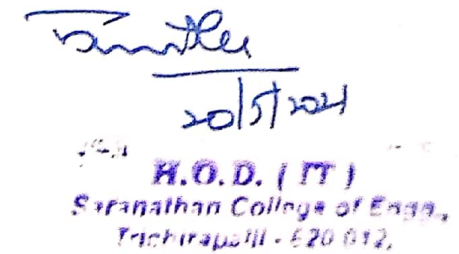 20/5/2021
H.O.D. ( IT )
Saranathan College of Engg.,
Tiruchirapalli - 620 012.